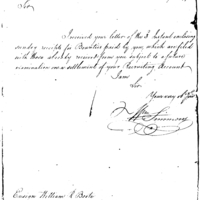 Sir
I received your letter of the 3 Instant enclosing
sundry receipts for Bounties paid by you, which are filed
with those already received from you subject to a future
examination on settlement of your Recruiting Account
I am
Sir
Your Obt
Wm Simmons
Ensign William R Boote